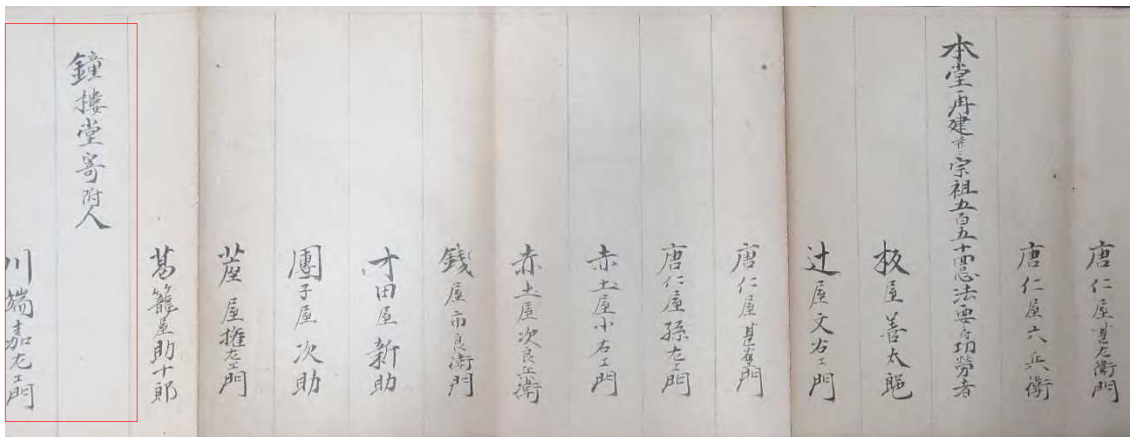 唐仁屋甚左衛門
唐仁屋六兵衛
本堂再建并ニ宗祖五百五十回忌法要ノ功労者
板屋善太郎
辻屋文右エ門
唐仁屋甚右衛門
唐仁屋孫左エ門
赤土屋小右エ門
赤土屋次良兵衛
銭屋市良衛門
才田屋新助
團子屋次助
屋権左エ門
葛籠屋助十郎
鐘楼堂寄附人
川端嘉左エ門